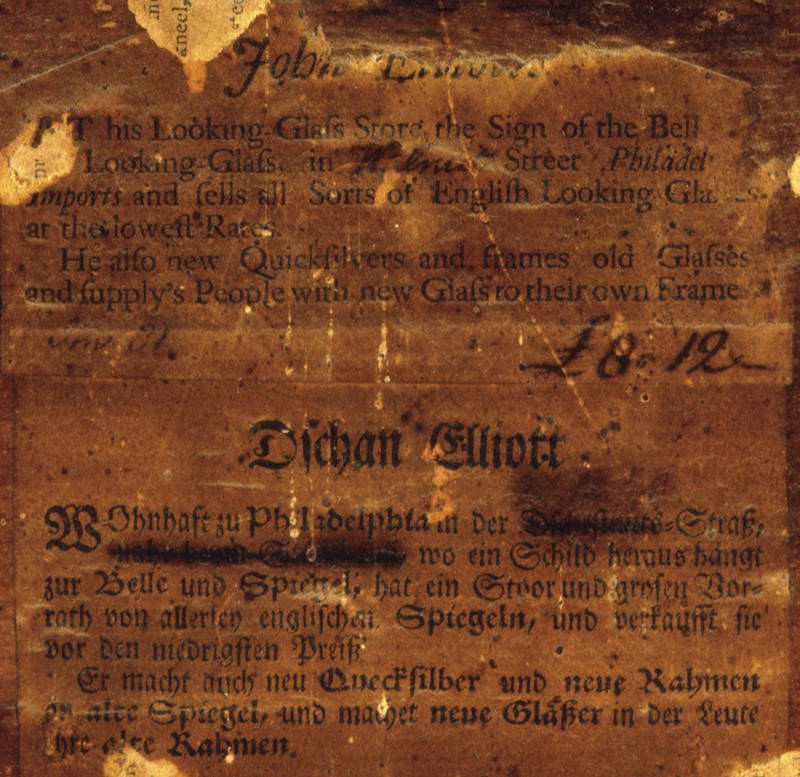 John Elliott
AT his Looking-Glaſs Store, the Sign of the Bell
Looking-Glaſs, in Street Philadel
Imports and ſells all Sorts of Engliſh Looking-Gla
at the loweſt Rates.
He alſo new Quickſilvers and frames old Glaſſes
and ſupply's People with new Glaſs to their own Frame
£8 " 12
Dſchan Elliott
WOhnhaft zu Philadelphia in der -Straß,
wo ein Schild heraus hängt
zur Belle und Spiegel; hat ein Stoor und groſen Vor-
rath von allerley engliſchen Spiegeln, und verkaufft ſie
vor den niedrigſten Preiß
Er macht auch neu Queckſilber und neue Rahmen
an alte Spiegel, und machet neue Gläßer in der Leute
ihre alte Rahmen.